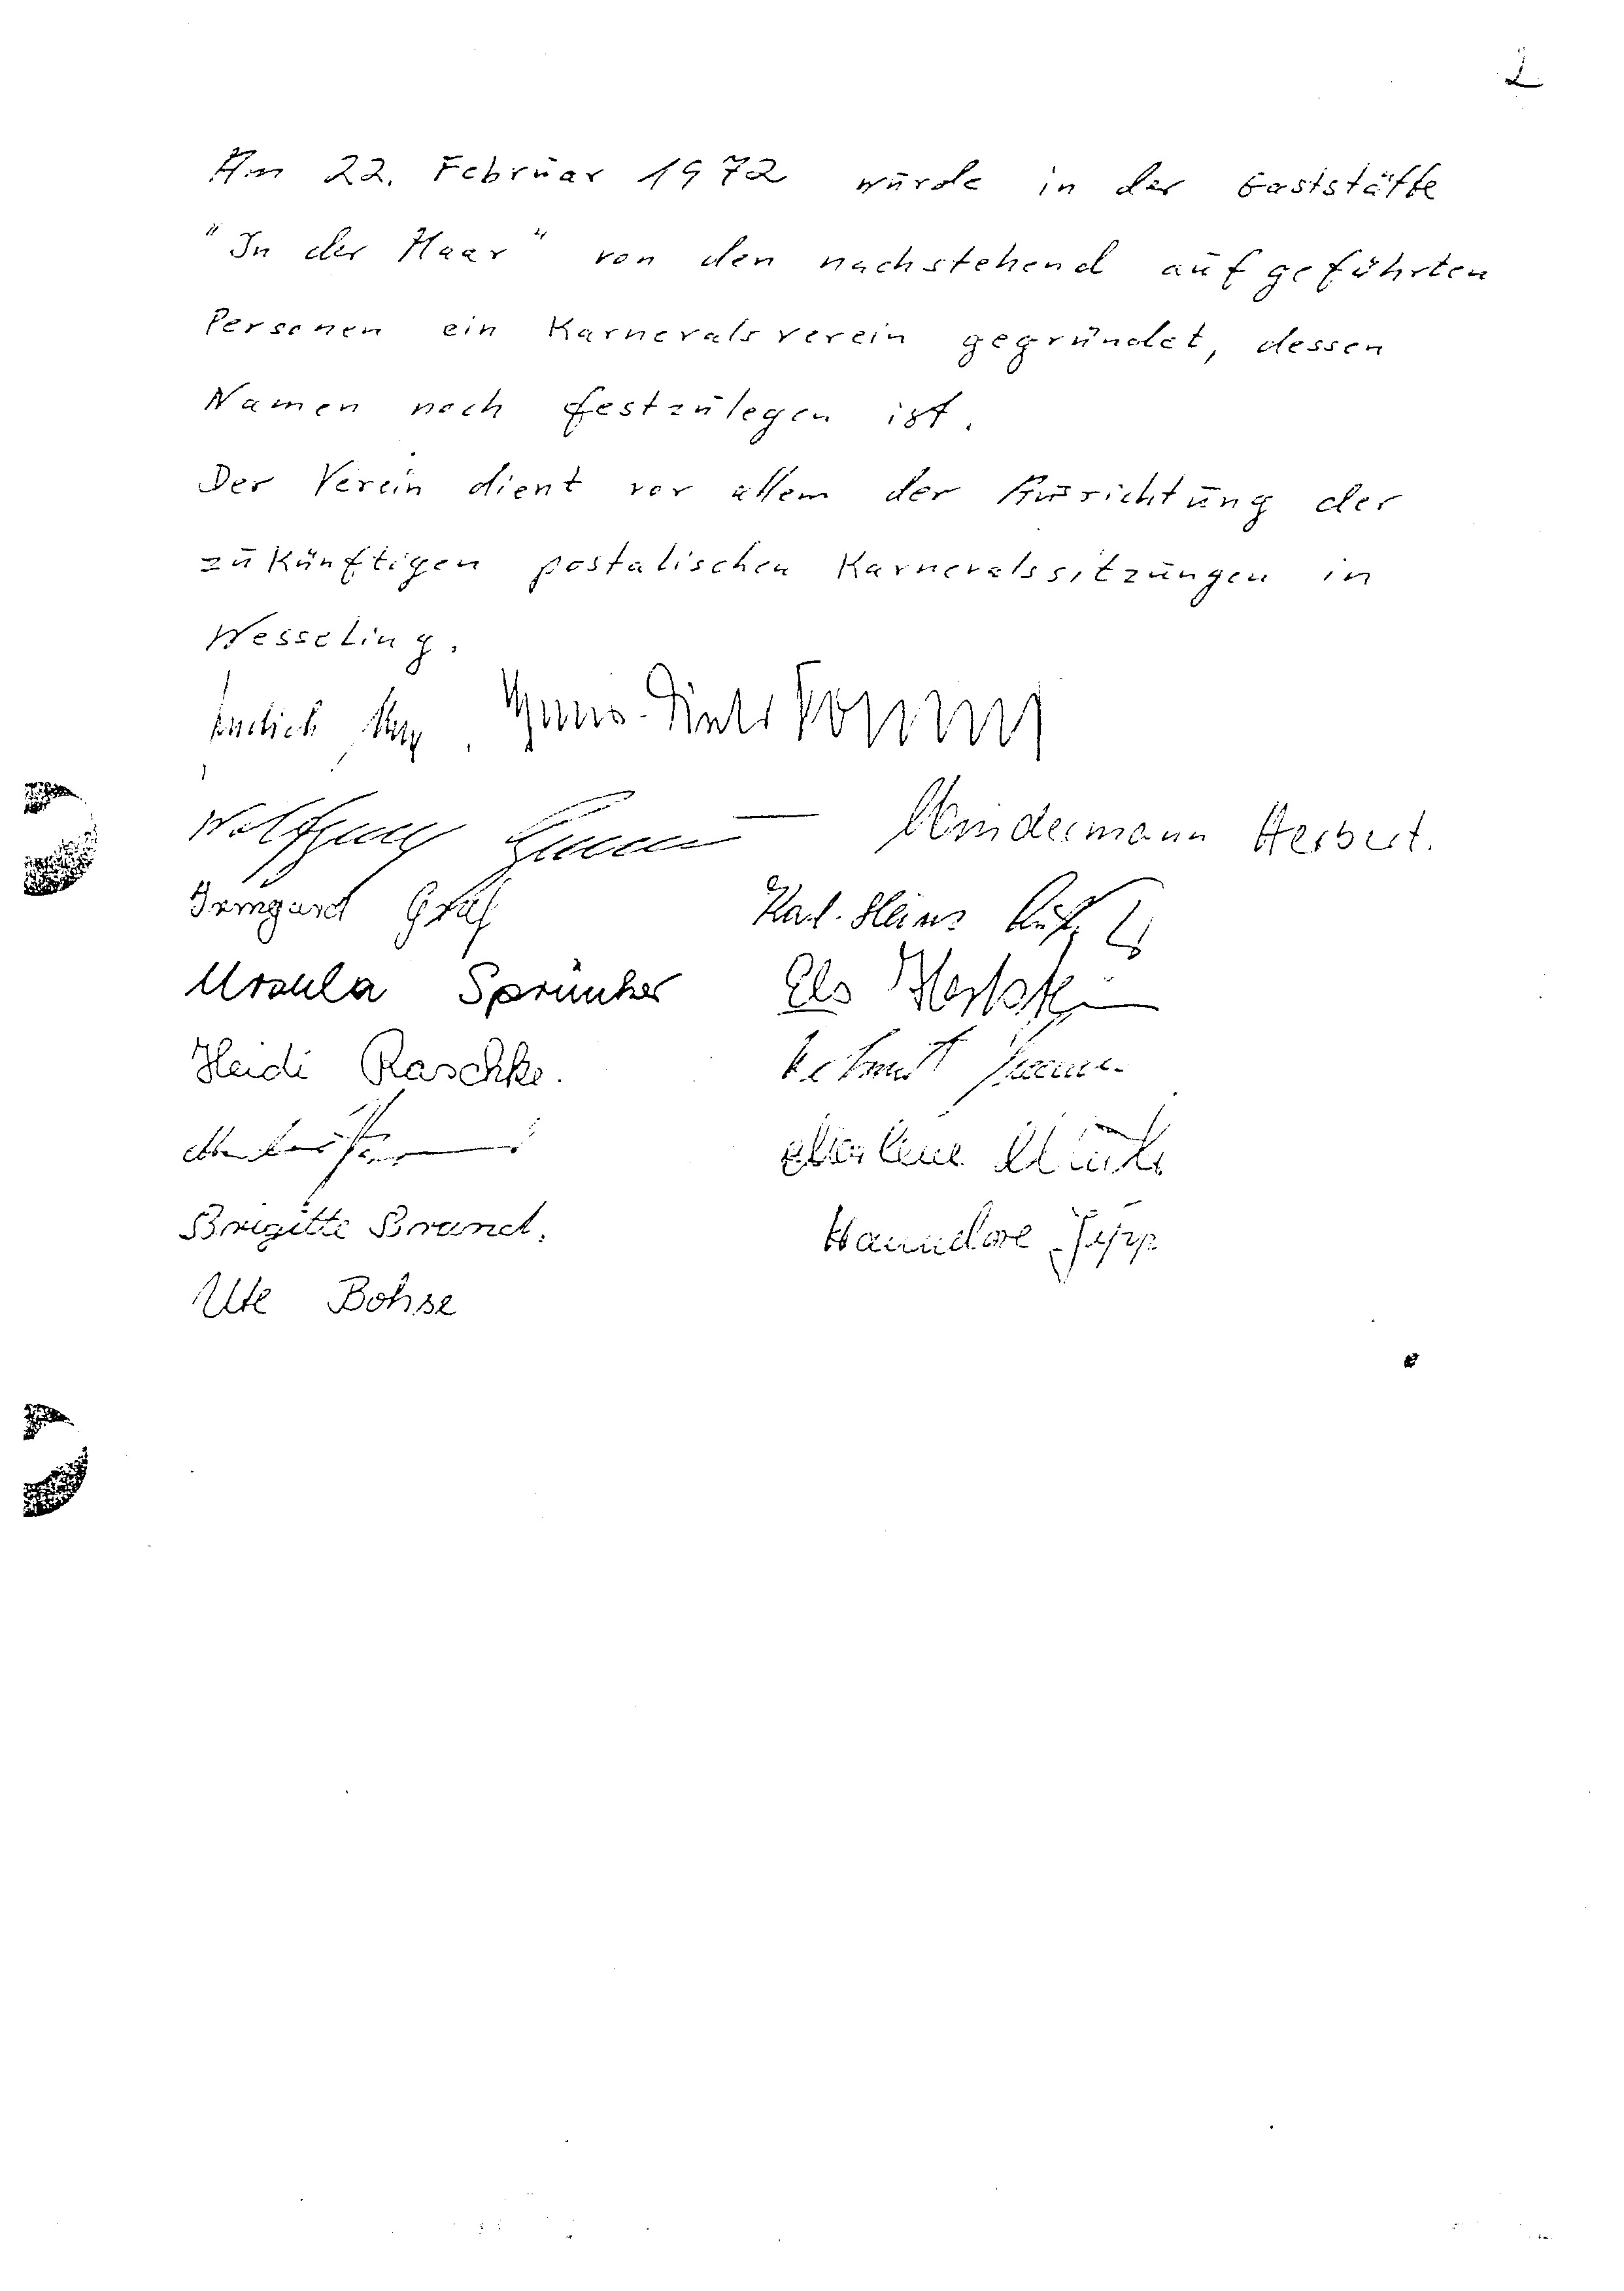 2
Am 22. Februar 1972 wurde in der Gaststätte
"In der Haar" von den nachstehend aufgeführten
Personen ein Karnevalsverein gegründet, dessen
Namen noch festzulegen ist.
Der Verein dient vor allem der Ausrichtung der
zukünftigen postalischen Karnevalssitzungen in
Wesseling.
Hans-Dieter
Wolfgang
Mindermann Herbert.
Irmgard Graf
Karl-Heinz
Ursula Sprünker
Els
Heidi Raschke.
Helmut
Marlene
Brigitte Brand.
Hannelore Jepp
Ute Bohse